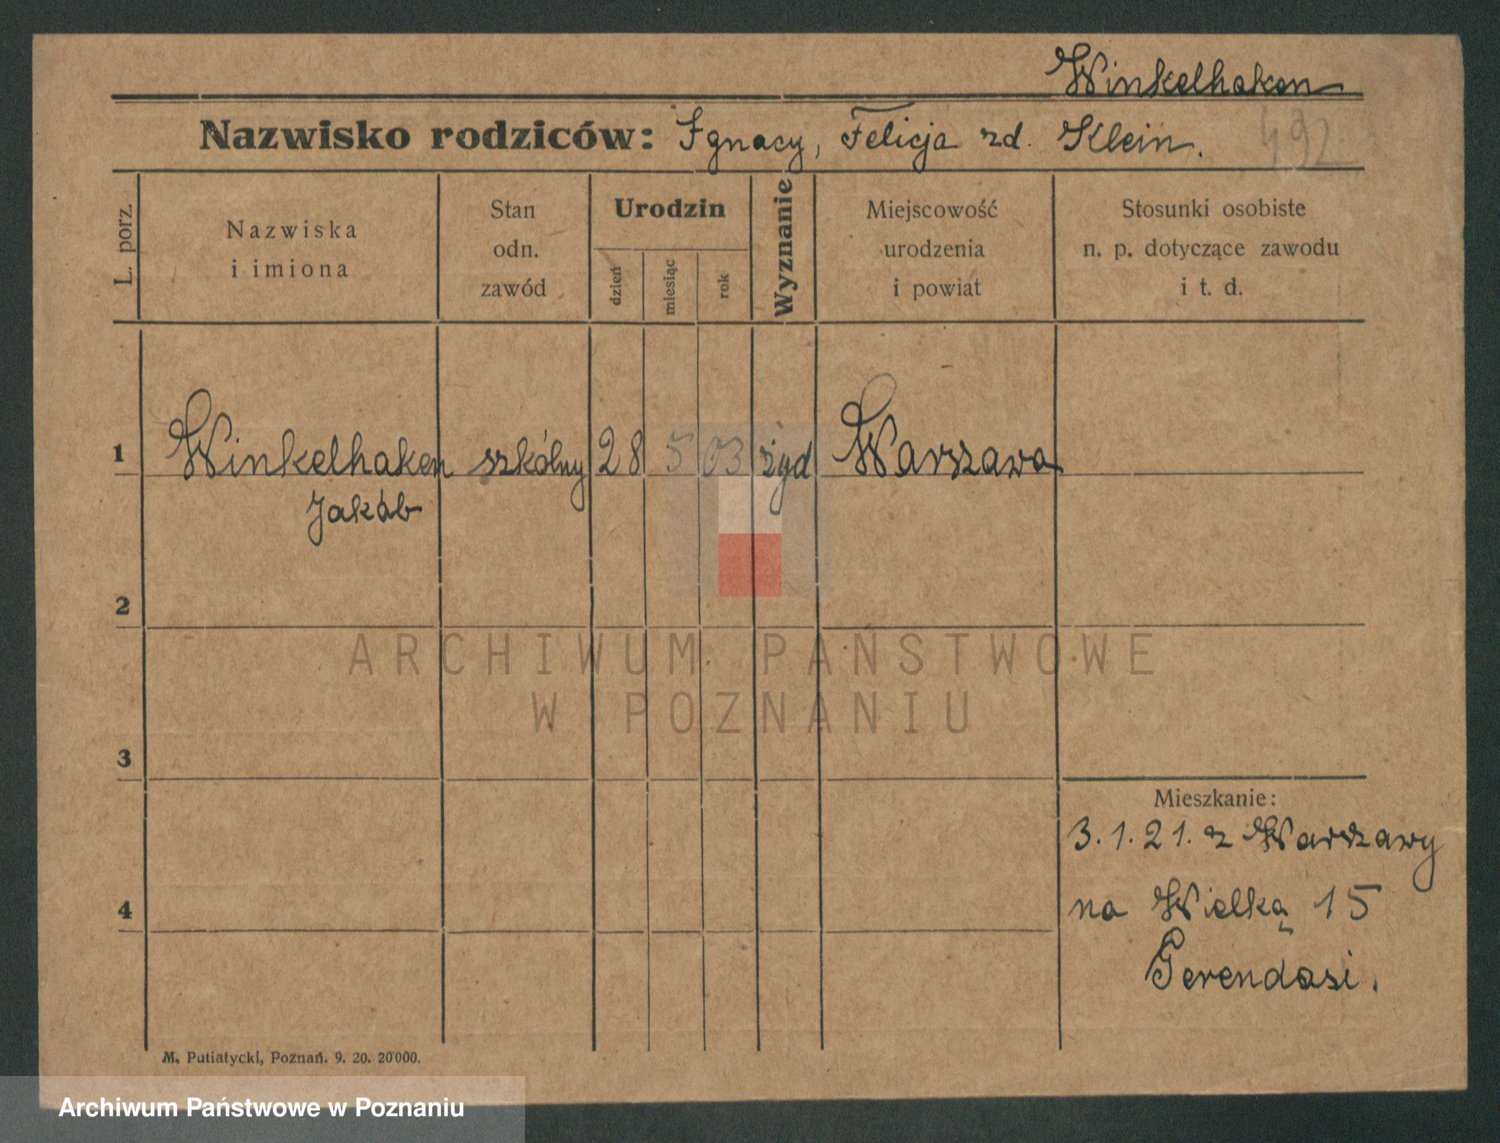 Winkelhaken
Nazwisko rodziców: Ignacy, Felicja zd. Klein. 492
L. porz.
Nazwiska
i imiona
Stan
odn.
zawód
Urodzin
dzień
miesiąc
rok
Wyznanie
Miejscowość
urodzenia
i powiat
Stosunki osobiste
n. p. dotyczące zawodu
i t. d.
1 Winkelhaken szkólny 28 5 03 żyd Warszawa
Jakób
2
ARCHIWUM PAŃSTWOWE
W POZNANIU
3
Mieszkanie:
3.1.21. z Warszawy
na Wielką 15
4
Gerendasi.
M. Putiatycki, Poznań. 9. 20. 20000.
Archiwum Państwowe w Poznaniu